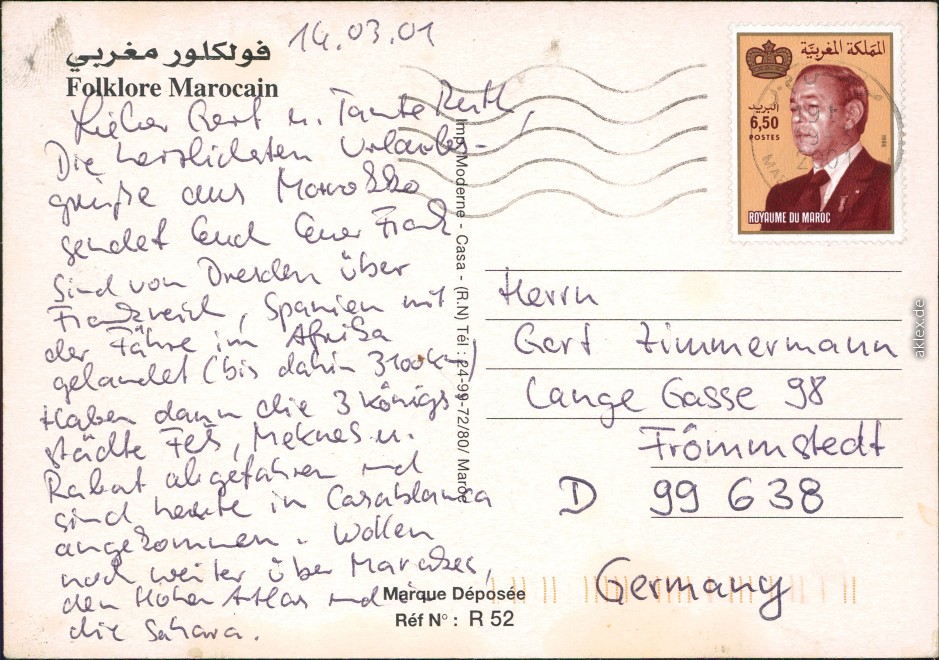 14.03.01
فولكلور مغربي
Folklore Marocain
Lieber Gert u. Tante Ruth,
Die herzlichsten Urlaubs-
grüße aus Marokko
sendet Euch Euer Frank
Sind von Dresden über
Frankreich, Spanien mit
der Fähre in Afrika
gelandet (bis dahin 3100km)
Haben dann die 3 Königs
städte Fes, Meknes u.
Rabat abgefahren und
sind heute in Casablanca
angekommen. Wollen
noch weiter über Marakes,
den Hohen Atlas und
die Sahara.
Imp. Moderne - Casa - (R.N) Tél : 24-99-72/80/ Maroc
Marque Déposée
Réf N° : R 52
المملكة المغربية
البريد
6,50
POSTES
ROYAUME DU MAROC
Herrn
Gert Zimmermann
Lange Gasse 98
Frömmstedt
D 99638
Germany
aklex.de